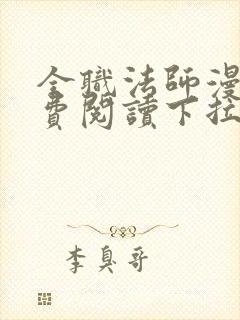 全職法師漫
費閱讀下拉
李臭哥